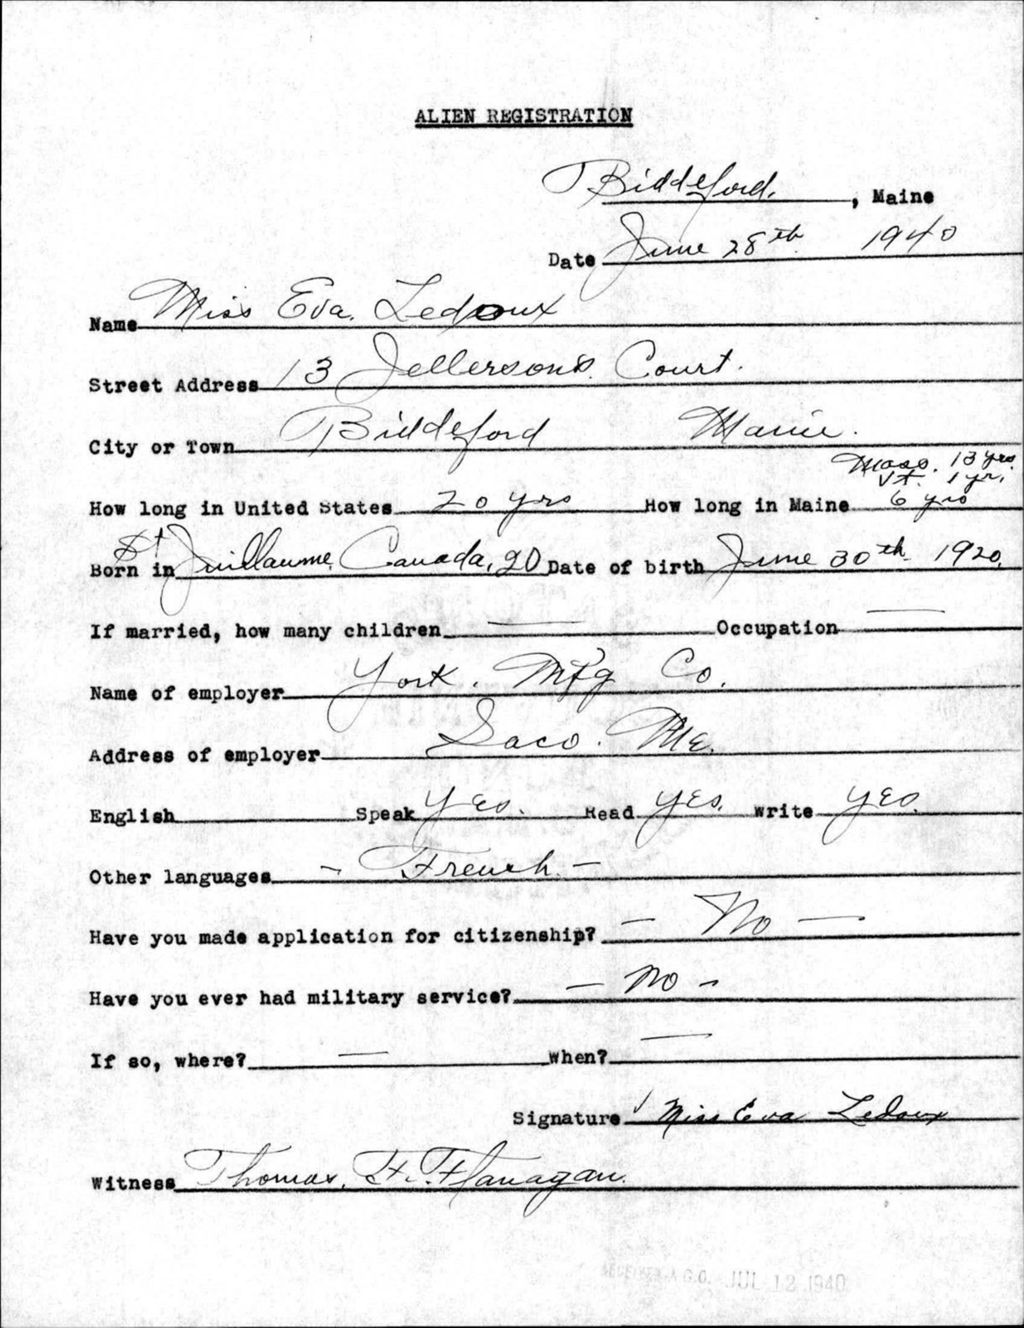 ALIEN REGISTRATION
Biddeford, , Maine
Date June 28th 1940
Name Miss Eva Ledoux
Street Address 13 Jellersons Court.
City or Town Biddeford Maine.
Mass. 13 yrs.
Vt. 1 yr.
How long in United States 20 yrs How long in Maine 6 yrs
Born in St Guillaume, Canada, Date of birth June 30th 1920.
If married, how many children — Occupation —
Name of employer York. Mfg Co.
Address of employer Saco. Me.
English Speak Yes. Read Yes. Write Yes.
Other languages - French. -
Have you made application for citizenship? - No -
Have you ever had military service? - No -
If so, where? — When? —
Signature Miss Eva Ledoux
Witness Thomas. F. Flanagan.
A.G.O. JUL 12 1940